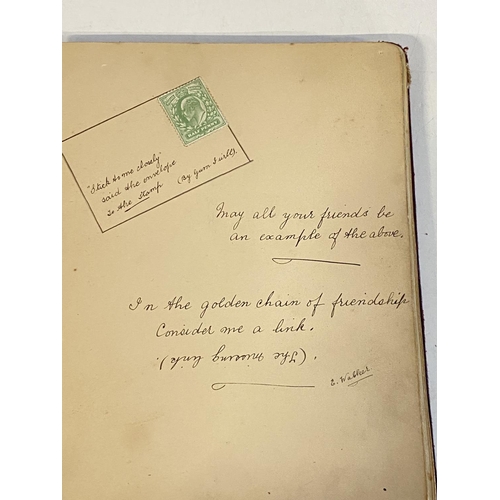 HALF PENNY
"Stick to me closely"
said the envelope
To the Stamp (By Gum I will).
May all your friends be
an example of the above.
In the golden chain of friendship
Consider me a link.
(The missing link).
E. Walker